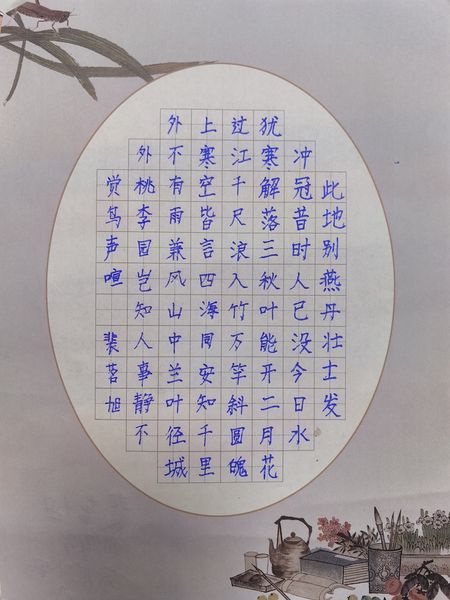 此地别燕丹壮士发
冲冠昔时人已没今日水
犹寒解落三秋叶能开二月花
过江千尺浪入竹万竿斜圆魄
上寒空皆言四海同安知千里
外不有雨兼风山中兰叶径城
外桃李园岂知人事静不
觉鸟声喧 裴茗旭